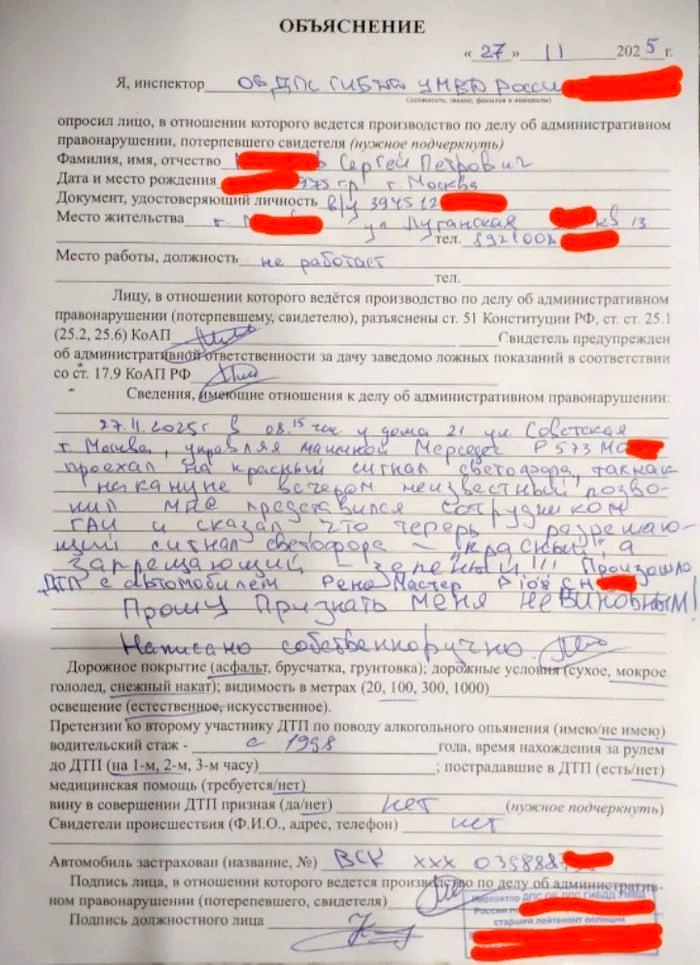 ОБЪЯСНЕНИЕ
«27» 11 2025 г.
Я, инспектор ОВ ДПС ГИБДД УМВД России
(должность, звание, фамилия и инициалы)
опросил лицо, в отношении которого ведется производство по делу об административном
правонарушении, потерпевшего свидетеля (нужное подчеркнуть)
Фамилия, имя, отчество Сергей Петрович
Дата и место рождения 1975 г.р г. Москва
Документ, удостоверяющий личность в/у 394512
Место жительства г. ул Луганская кв 13
тел. 8921008
Место работы, должность не работает
тел.
Лицу, в отношении которого ведётся производство по делу об административном
правонарушении (потерпевшему, свидетелю), разъяснены ст. 51 Конституции РФ, ст. ст. 25.1
(25.2, 25.6) КоАП Свидетель предупрежден
об административной ответственности за дачу заведомо ложных показаний в соответствии
со ст. 17.9 КоАП РФ
Сведения, имеющие отношения к делу об административном правонарушении:
27.11.2025г в 08.15 час у дома 21 ул. Советская
г Москва, управляя машиной Мерседес Р573М
проехал на красный сигнал светофора, так как
накануне вечером неизвестный позво-
нил мне представился сотрудником
ГАИ и сказал что теперь разрешаю-
щий сигнал светофора – "красный", а
запрещающий – зеленый!!! Произошло
ДТП с автомобилем Рено Мастер Р108СН
Прошу Признать меня невиновным!
Написано собственноручно
Дорожное покрытие (асфальт, брусчатка, грунтовка); дорожные условия (сухое, мокрое
гололед, снежный накат); видимость в метрах (20, 100, 300, 1000)
освещение (естественное, искусственное).
Претензии ко второму участнику ДТП по поводу алкогольного опьянения (имею/не имею)
водительский стаж - с 1998 года, время нахождения за рулем
до ДТП (на 1-м, 2-м, 3-м часу) ; пострадавшие в ДТП (есть/нет)
медицинская помощь (требуется/нет)
вину в совершении ДТП призная (да/нет) нет (нужное подчеркнуть)
Свидетели происшествия (Ф.И.О., адрес, телефон) нет
Автомобиль застрахован (название, №) ВСК ХХХ 0398887
Подпись лица, в отношении которого ведется производство по делу об административ-
ном правонарушении (потерепевшего, свидетеля)
Инспектор ДПС ОВ ДПС ГИБДД УМВД
России
Подпись должностного лица
старший лейтенант полиции